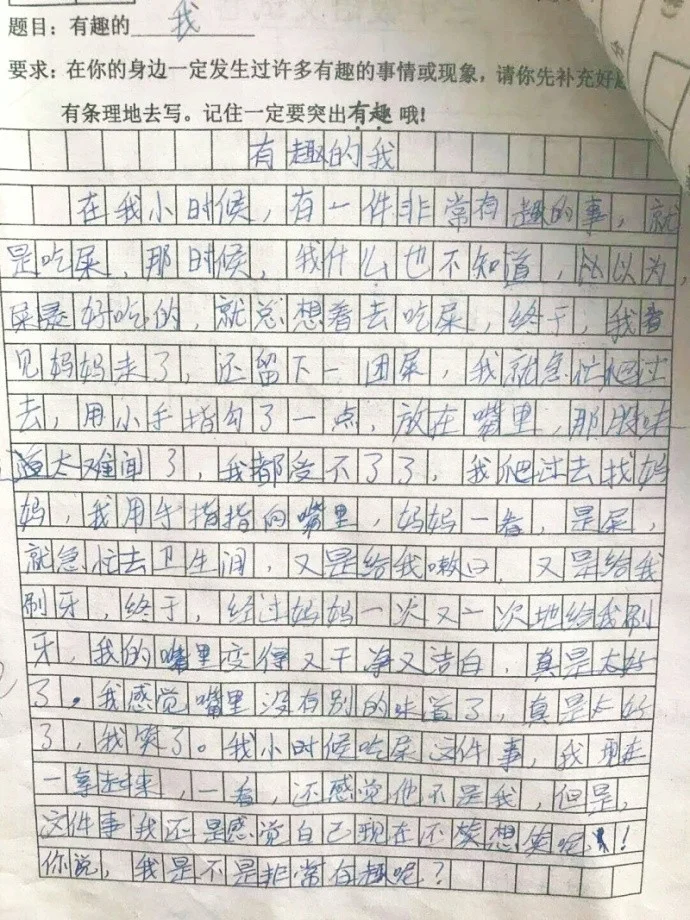 题目：有趣的 我
要求：在你的身边一定发生过许多有趣的事情或现象，请你先补充好
有条理地去写。记住一定要突出有趣哦！
有趣的我
在我小时候，有一件非常有趣的事，就
是吃屎，那时候，我什么也不知道，以为，
屎是好吃的，就总想着去吃屎，终于，我看
见妈妈走了，还留下一团屎，我就急忙爬过
去，用小手指勾了一点，放在嘴里，那股味
道太难闻了，我都受不了了，我爬过去找妈
妈，我用手指指向嘴里，妈妈一看，是屎，
就急忙去卫生间，又是给我嗽口，又是给我
刷牙，终于，经过妈妈一次又一次地给我刷
牙，我的嘴里变得又干净又洁白，真是太好
了。我感觉嘴里没有别的味道了，真是太好
了，我笑了。我小时候吃屎这件事，我现在
一拿起来，一看，还感觉他不是我，但是，
这件事我还是感觉自己现在还想笑呢！
你说，我是不是非常有趣呢？